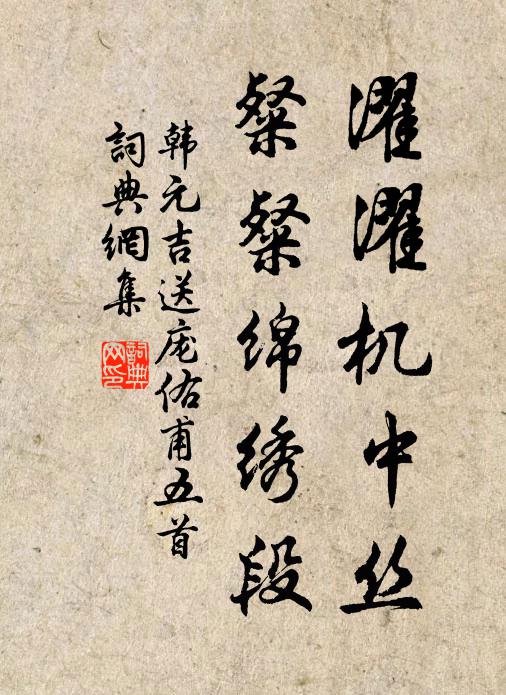 濯濯机中丝
粲粲绵绣段
韩元吉送庞佑甫五首
詞典網集
詞典
网印